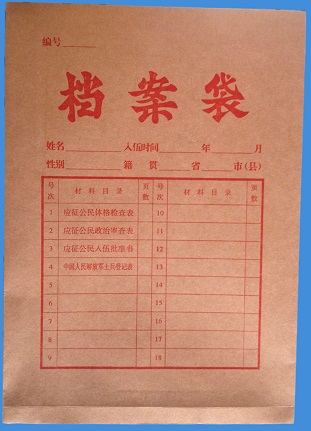 编号______
档案袋
姓名________入伍时间______年______月
性别________籍 贯______省______市(县)
号次 材料目录 页数 号次 材料目录 页数
1 应征公民体格检查表 10
2 应征公民政治审查表 11
3 应征公民入伍批准书 12
4 中国人民解放军士兵登记表 13
5 14
6 15
7 16
8 17
9 18